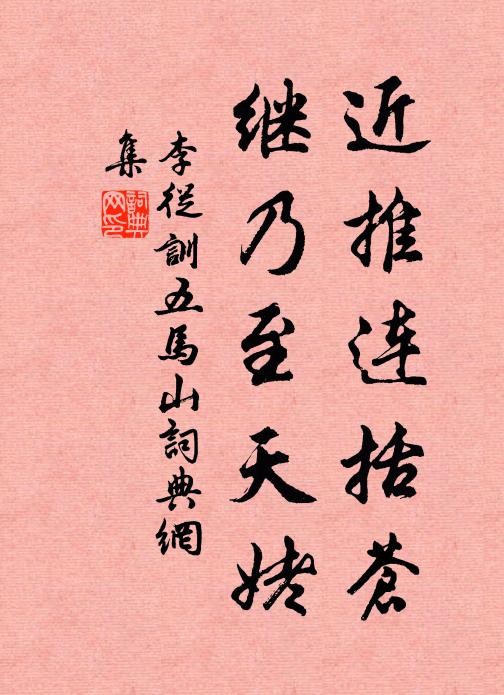 近推连括苍
继乃至天姥
李從訓五馬山詞典網
集
詞典
网印